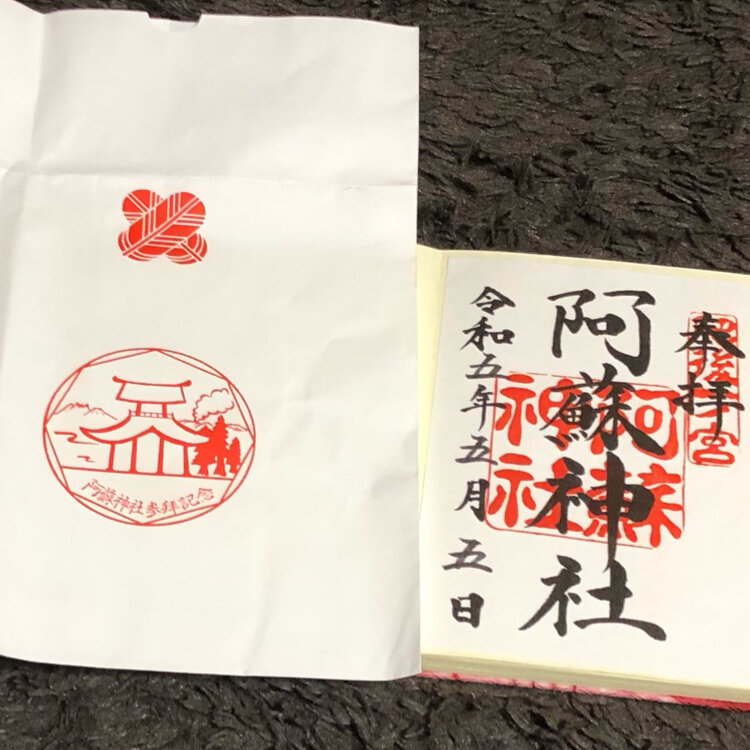 阿蘇神社参拝記念
奉拝
肥後一宮
阿蘇神社
阿蘇
神社
令和五年五月五日